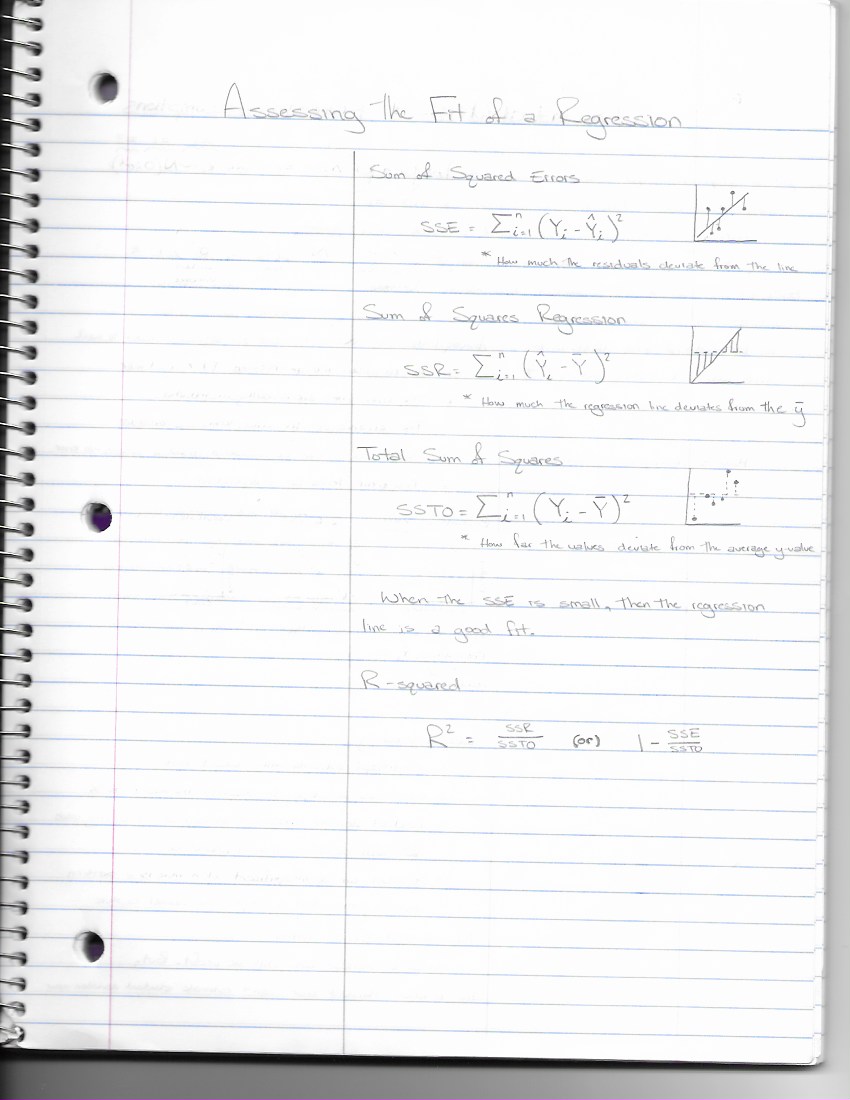 Assessing the Fit of a Regression
Sum of Squared Errors
SSE = ∑ᵢ₌₁ⁿ (Yᵢ - Ŷᵢ)²
* How much the residuals deviate from the line
Sum of Squares Regression
SSR = ∑ᵢ₌₁ⁿ (Ŷᵢ - Ȳ)²
* How much the regression line deviates from the ȳ
Total Sum of Squares
SSTO = ∑ᵢ₌₁ⁿ (Yᵢ - Ȳ)²
* How far the values deviate from the average y-value
When the SSE is small, then the regression
line is a good fit.
R-squared
R² = SSR/SSTO (or) 1 - SSE/SSTO